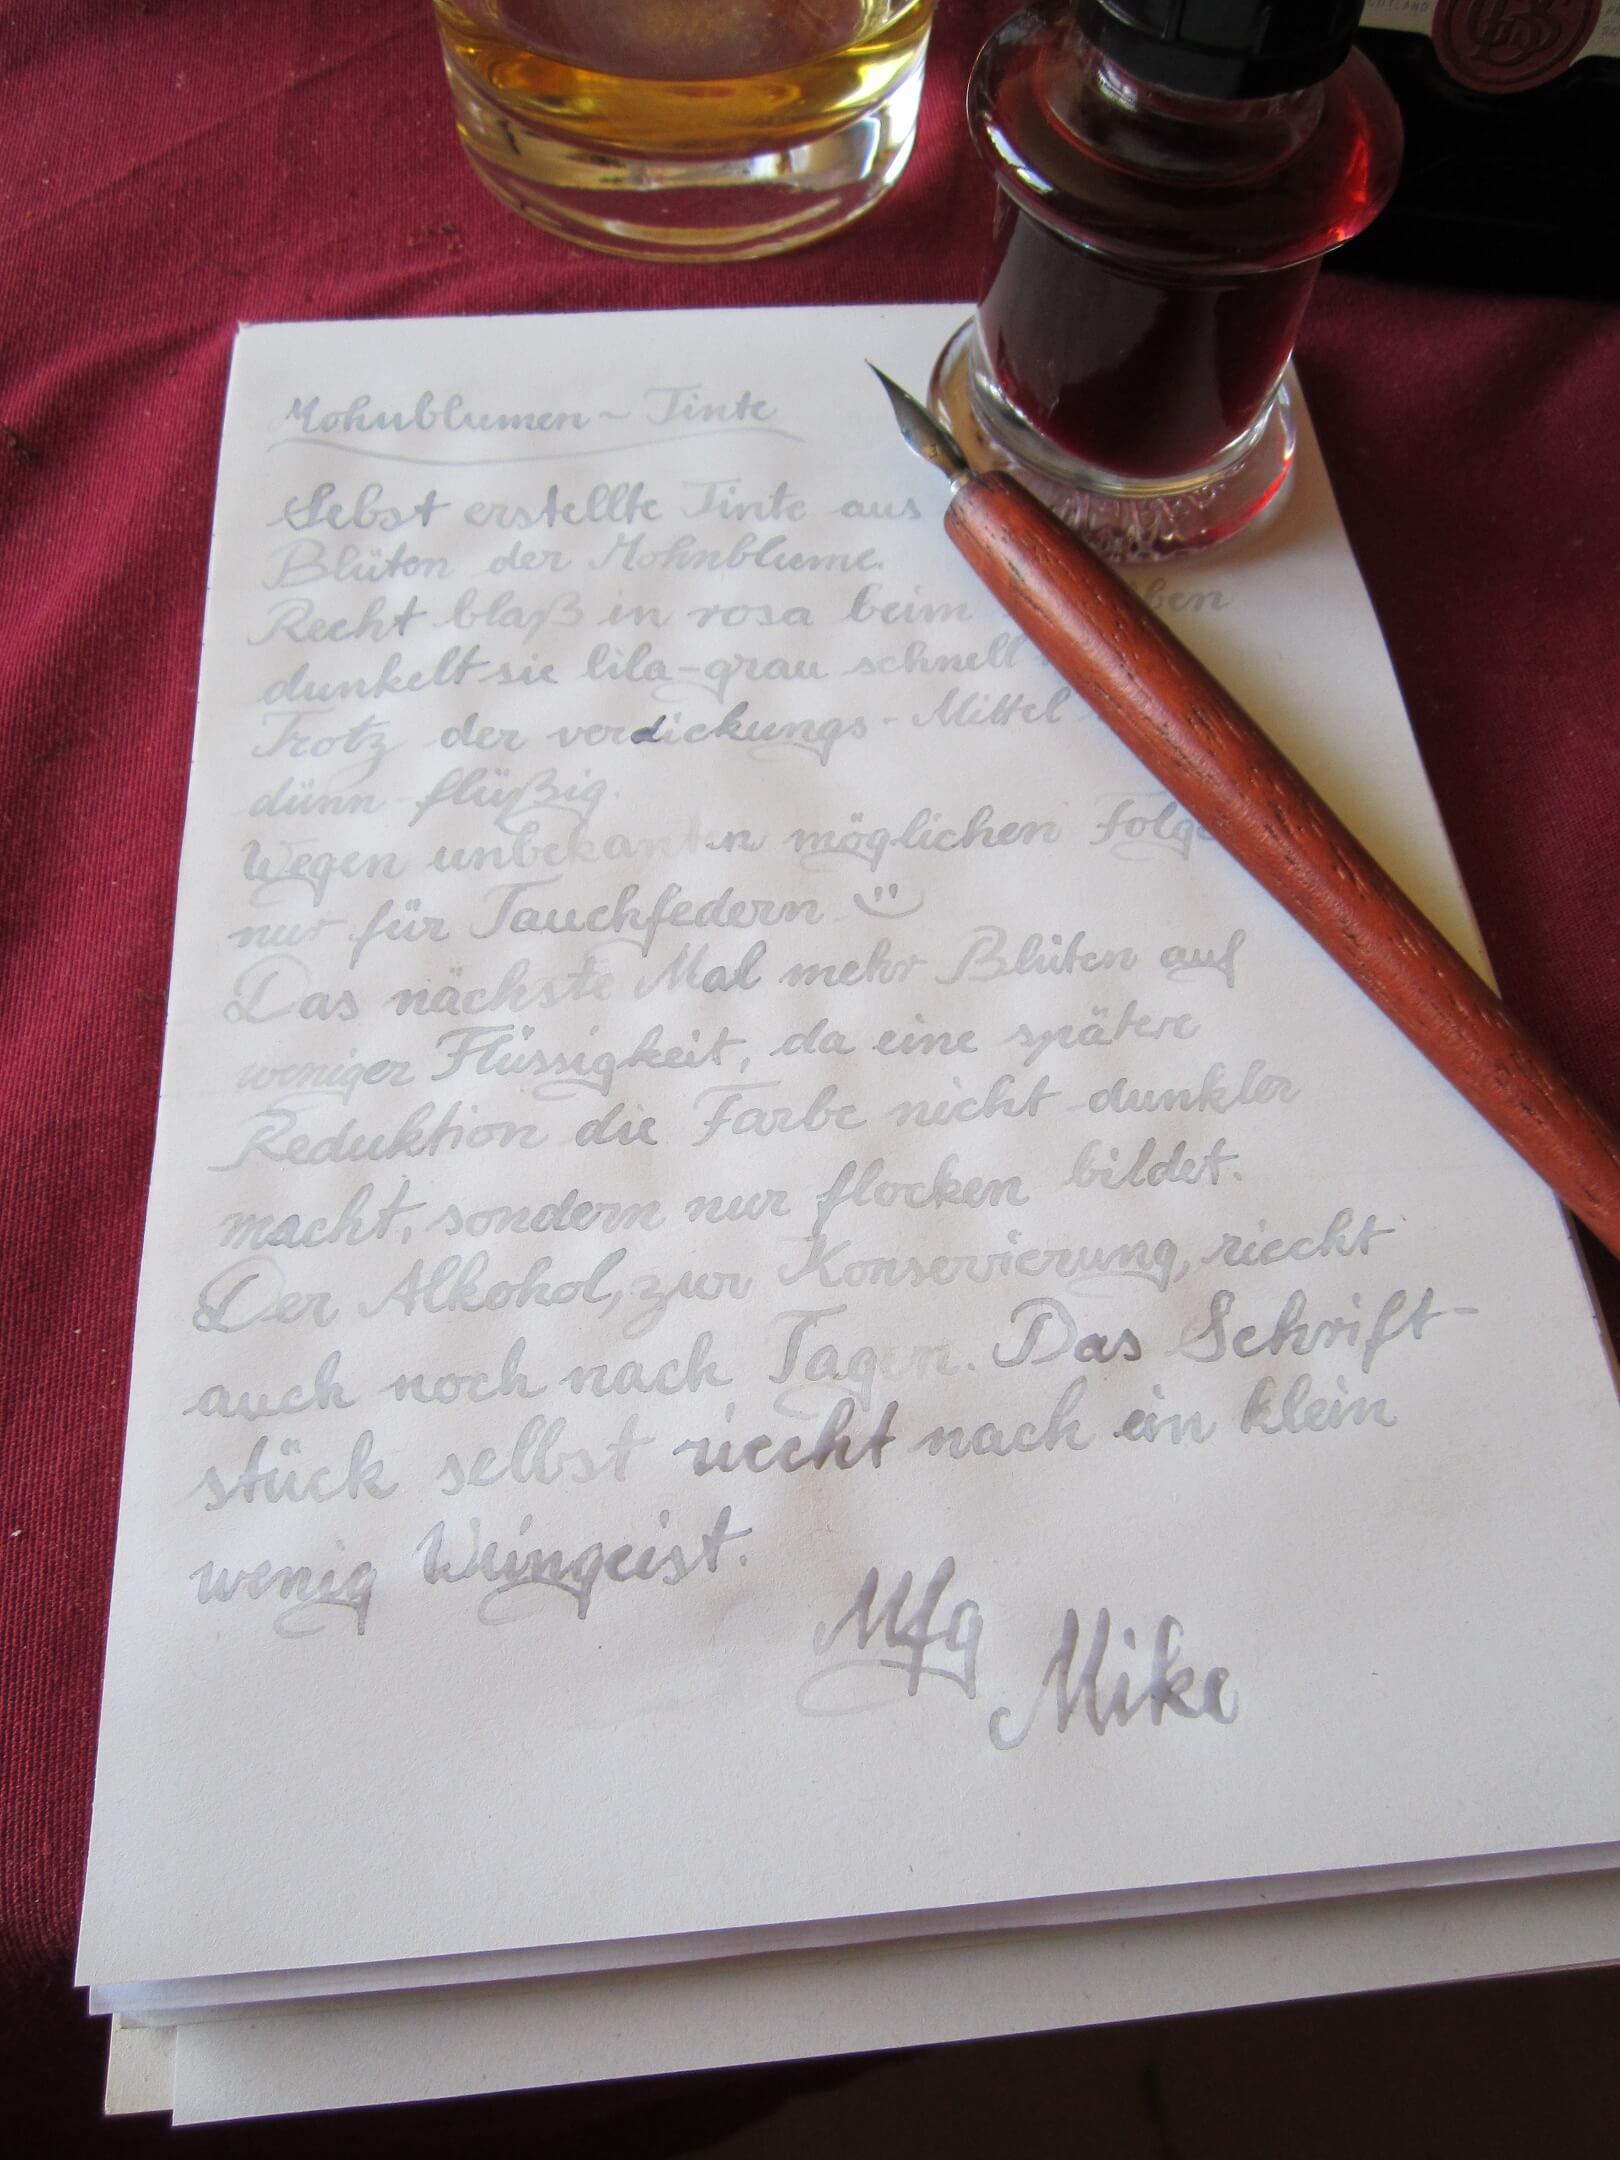 Mohnblumen ~ Tinte
Sebst erstellte Tinte aus
Blüten der Mohnblume.
Recht blaß in rosa beim
dunkelt sie lila-grau schnell
Trotz der verdickungs-Mittel
dünn flüßig.
Wegen unbekannten möglichen Folge
nur für Tauchfedern
Das nächste Mal mehr Blüten auf
weniger Flüssigkeit, da eine spätere
Reduktion die Farbe nicht dunkler
macht, sondern nur flocken bildet.
Der Alkohol, zur Konservierung, riecht
auch noch nach Tagen. Das Schrift-
stück selbst riecht nach ein klein
wenig Weingeist.
Mfg
Mike